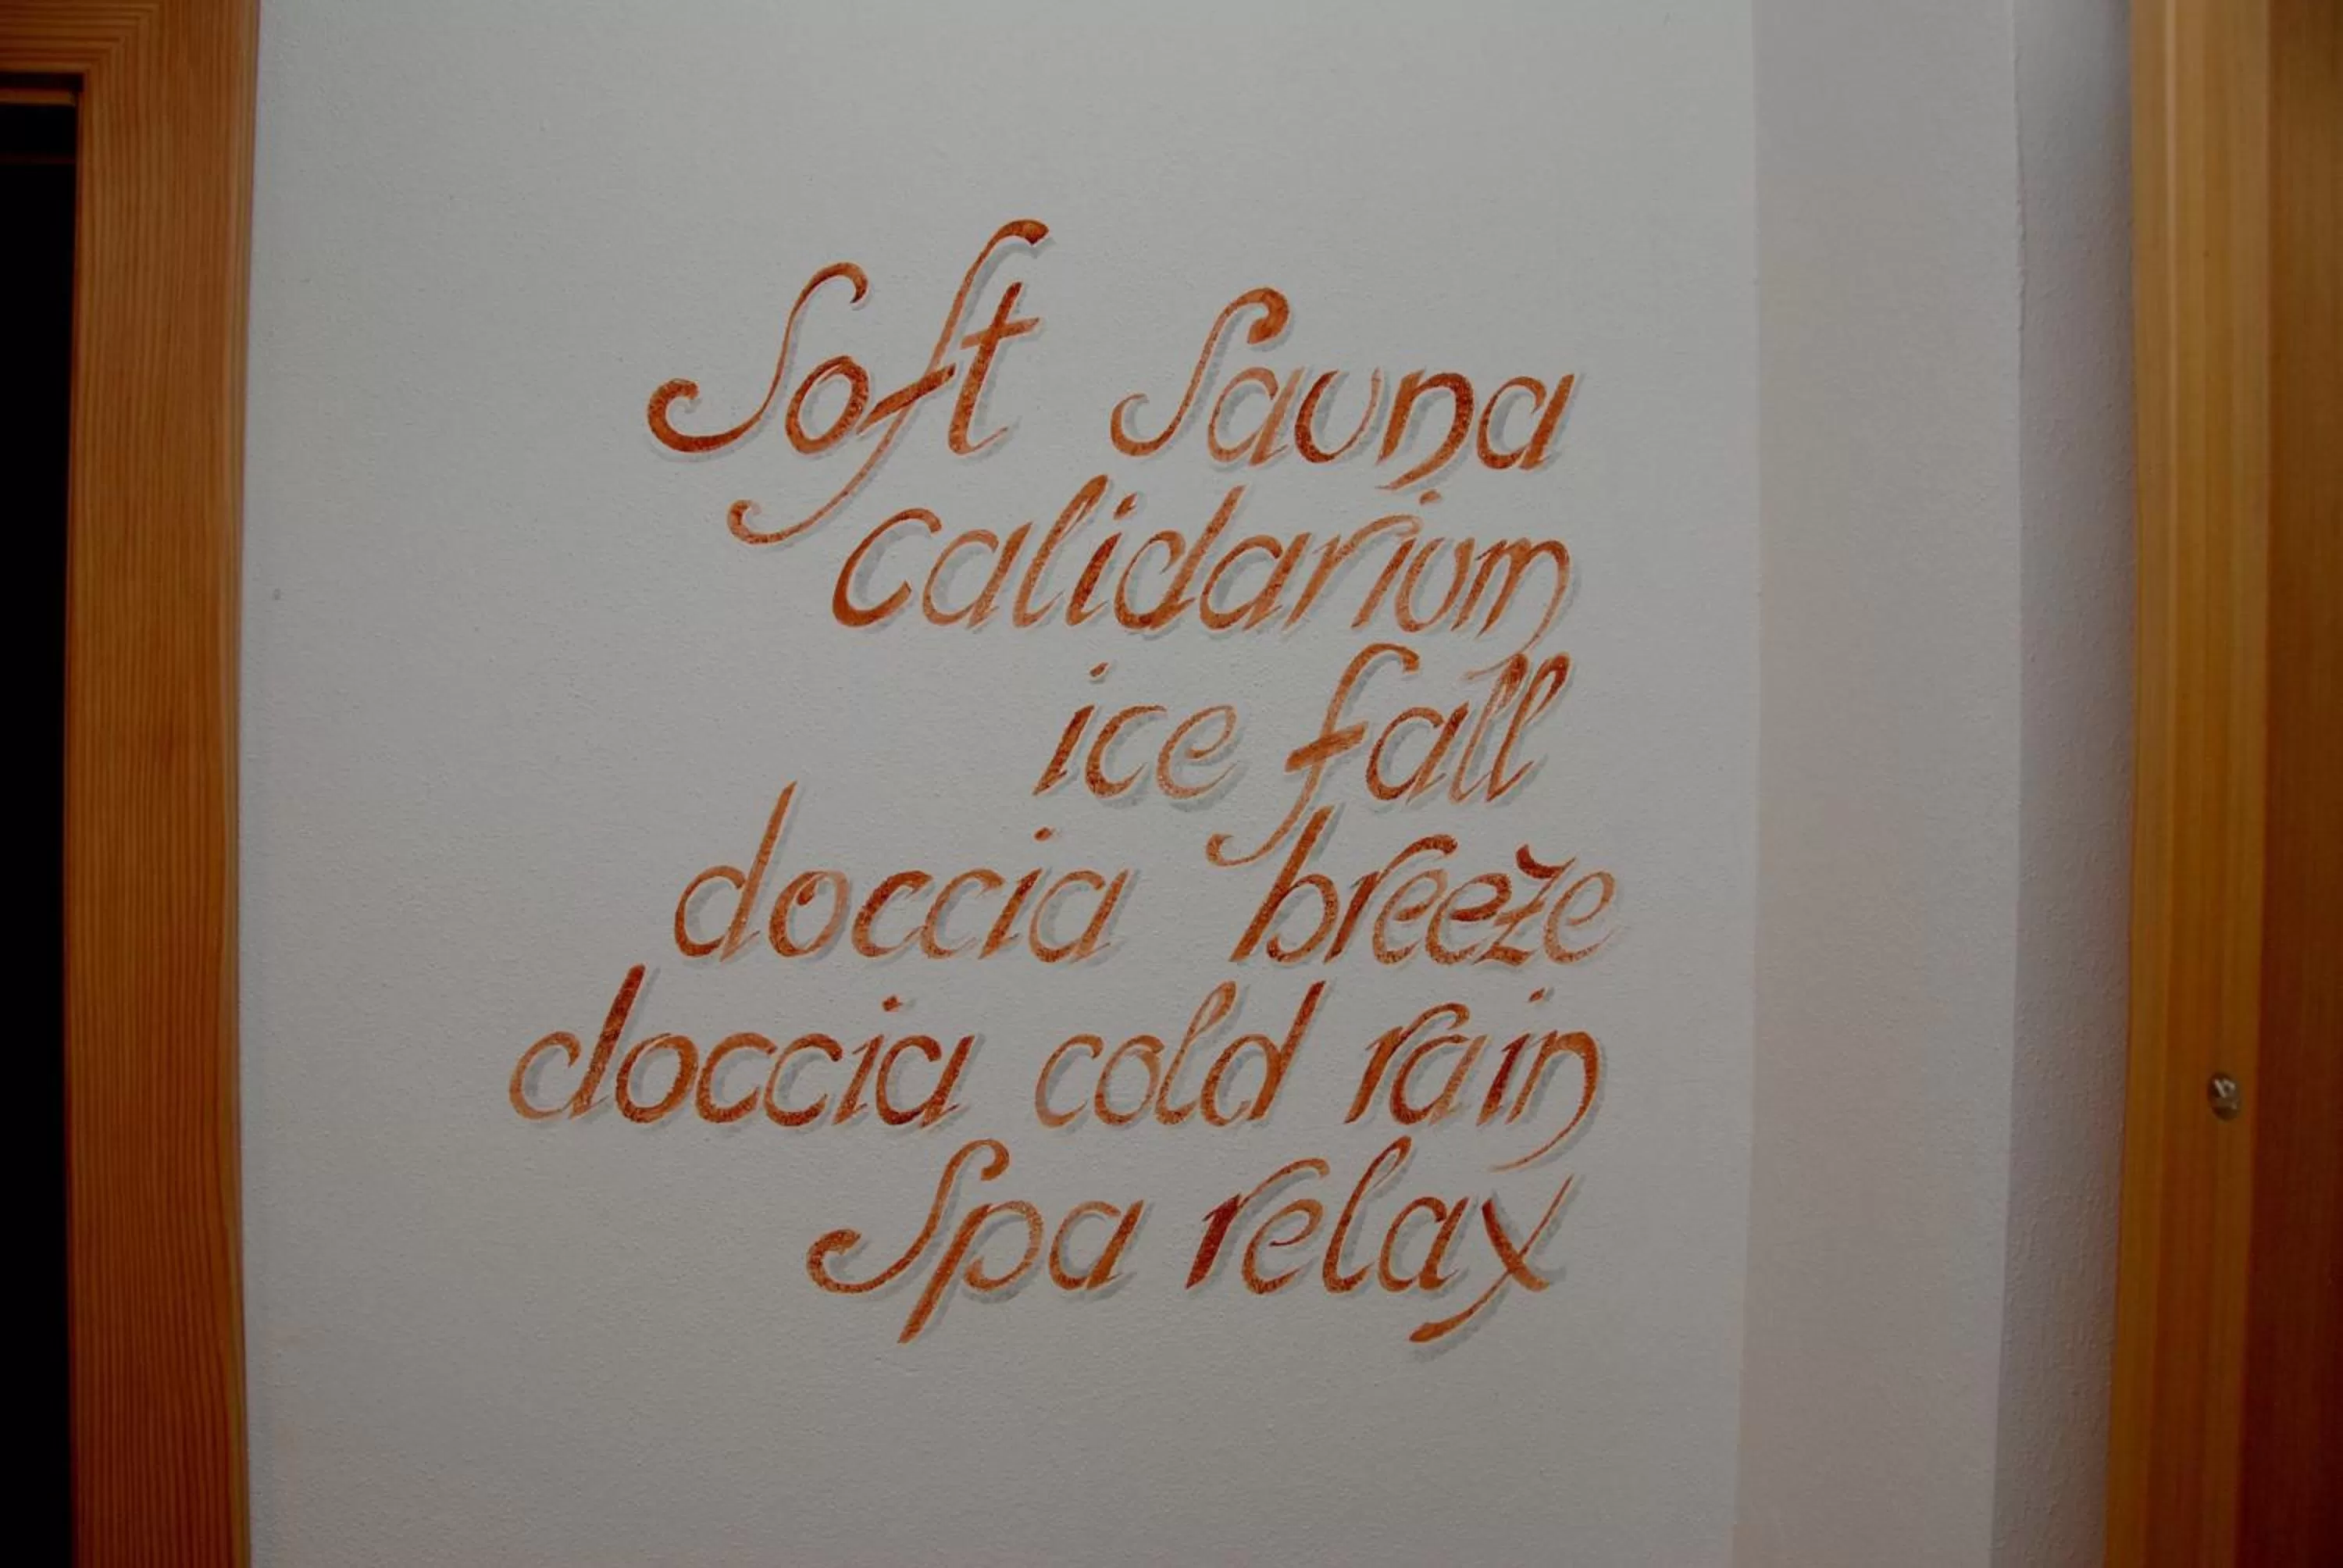 Soft Sauna
calidarium
ice fall
doccia breeze
doccia cold rain
Spa relax